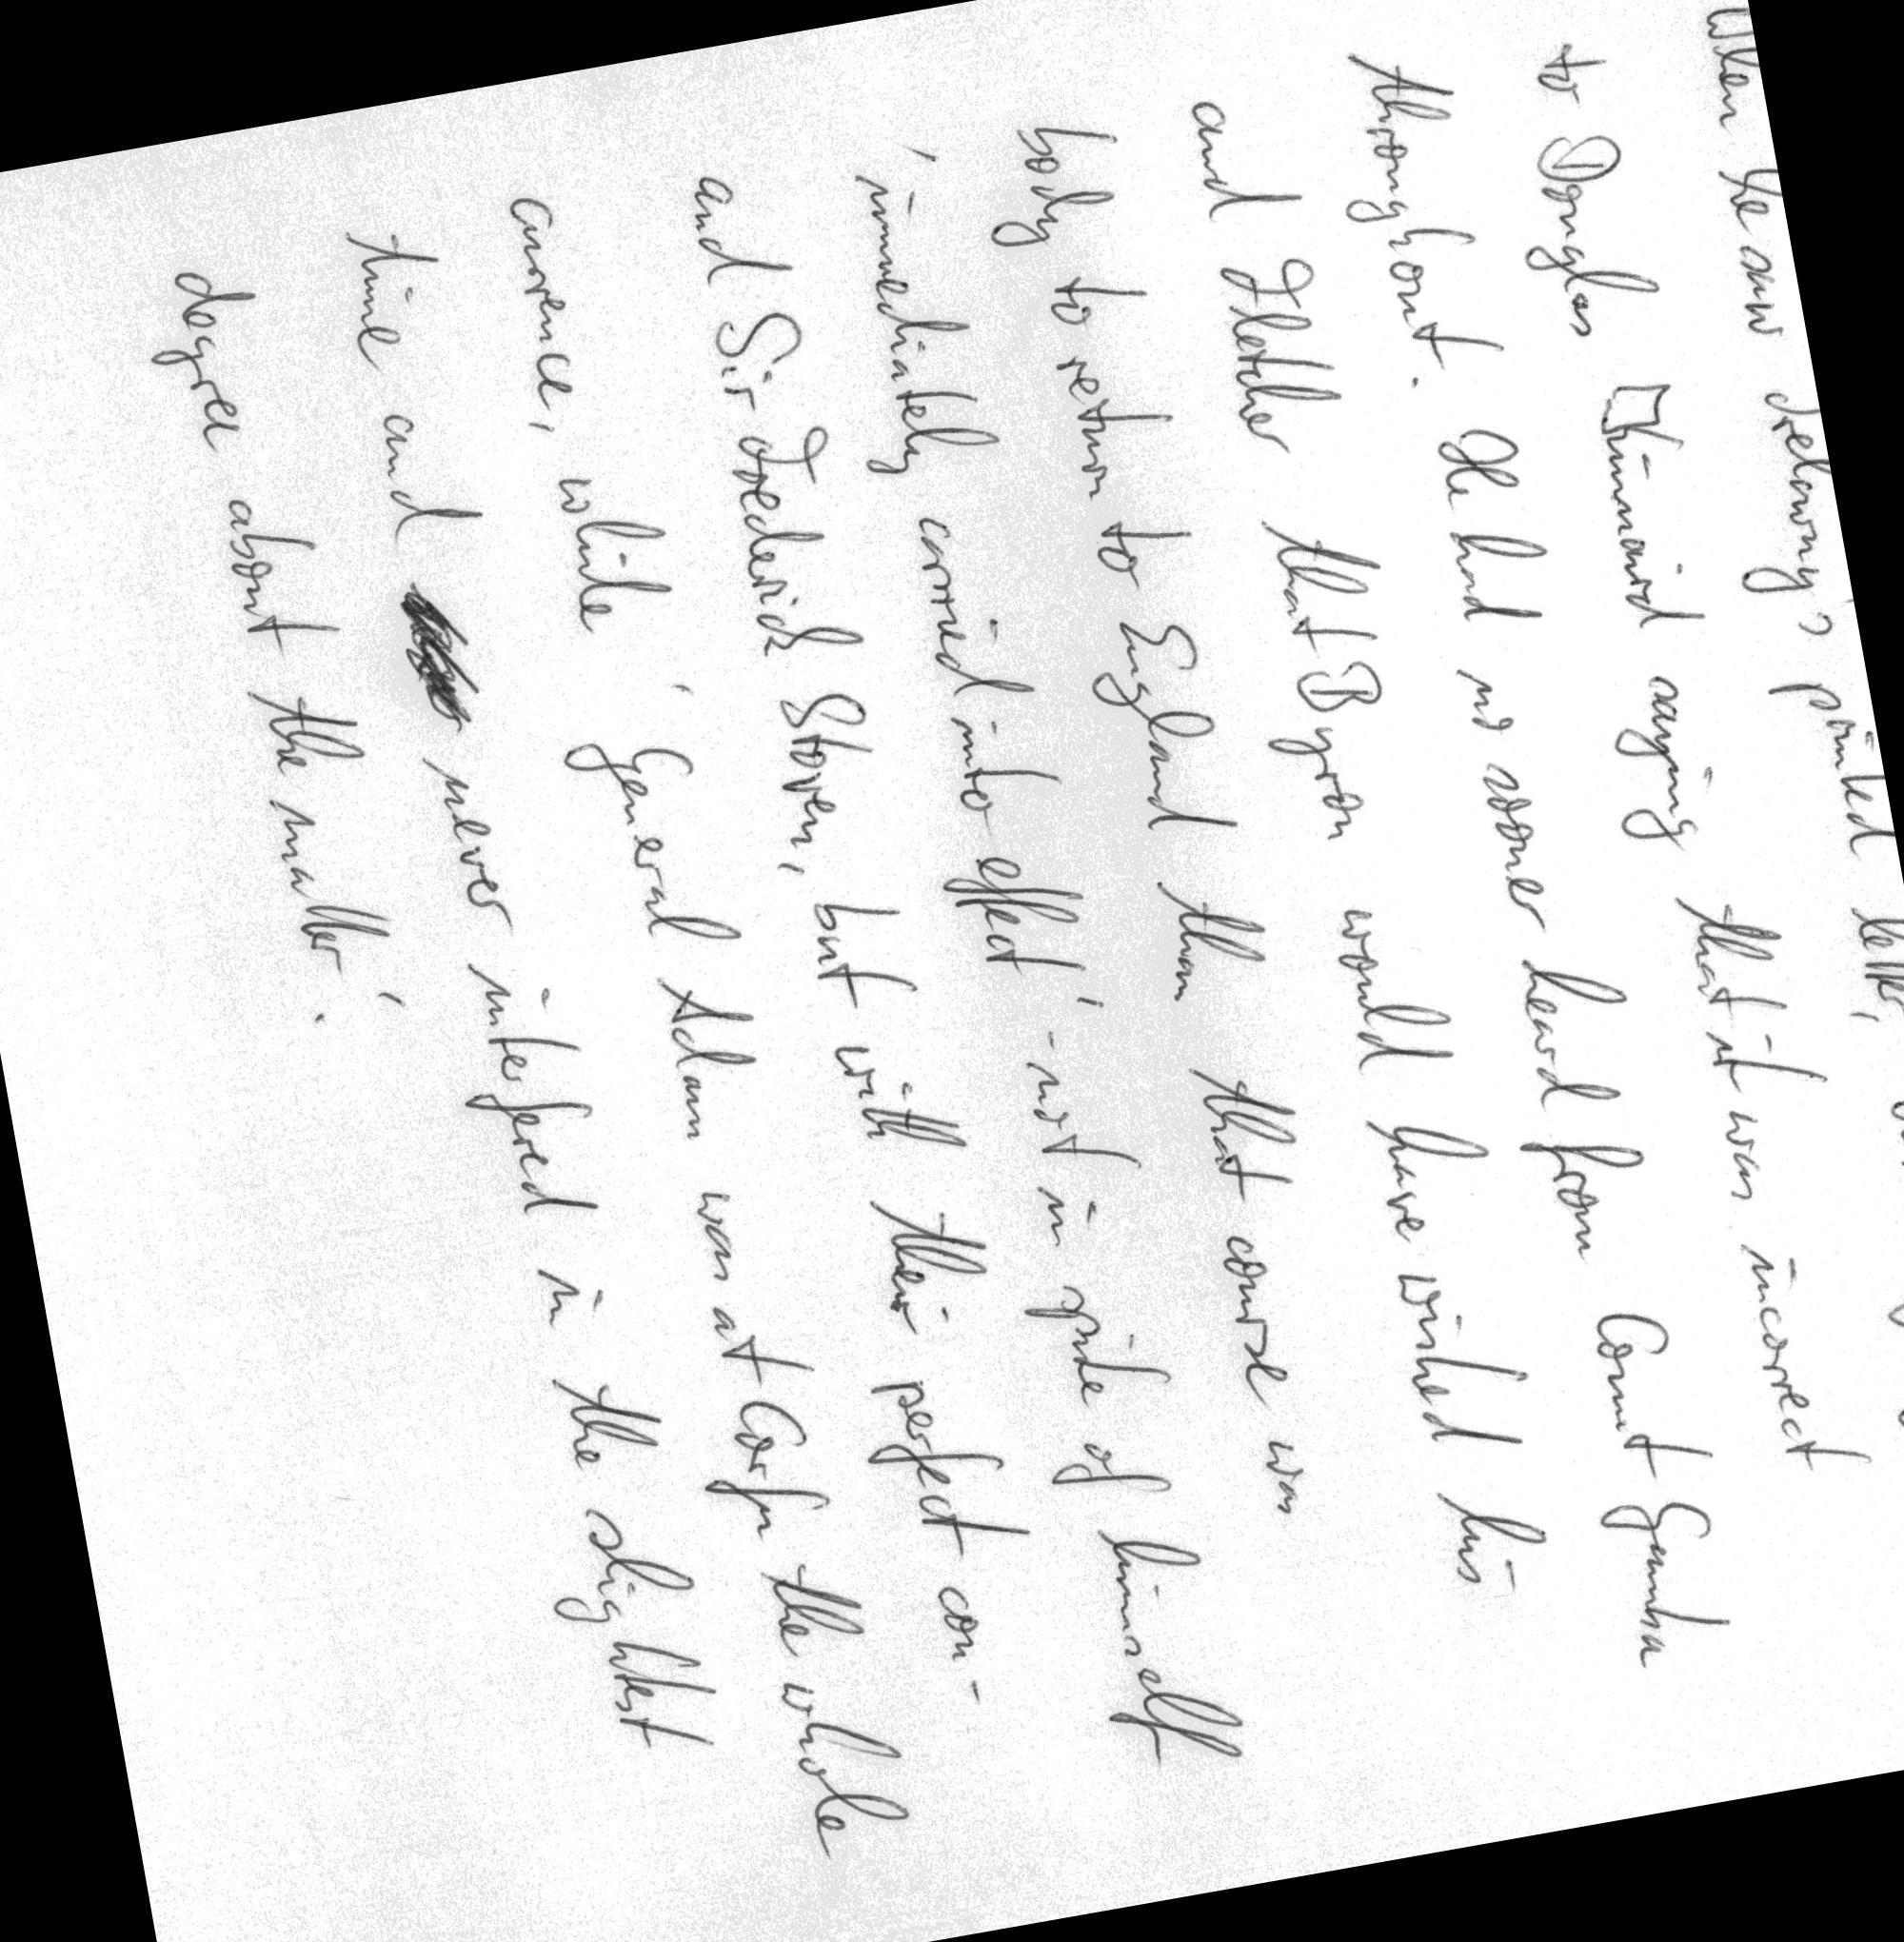 When he saw printed
to Douglas Kinnaird saying that it was incorrect
throughout. He had no sooner heard from Count Gamba
and Fletcher that Byron would have wished his
body to return to England than that course was
'immediately carried into effect' - not in spite of himself
and Sir Frederick Stoven, but with their perfect con-
currence, while 'General Adam was at Corfu the whole
time and never interfered in the slightest
degree about the matter'.